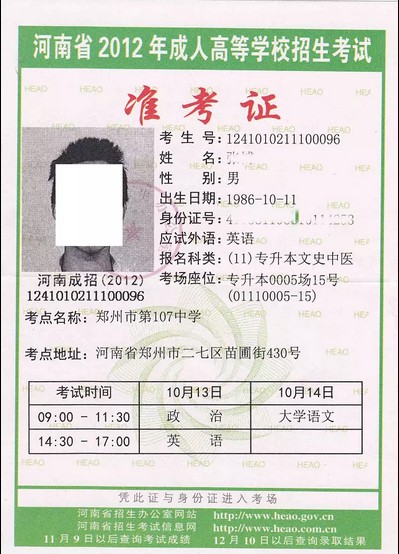 河南省2012年成人高等学校招生考试
准考证
考生号：1241010211100096
姓名：
性别：男
出生日期：1986-10-11
身份证号：
应试外语：英语
报名科类：(11)专升本文史中医
考场座位：专升本0005场15号
(01110005-15)
河南成招(2012)
1241010211100096
考点名称：郑州市第107中学
考点地址：河南省郑州市二七区苗圃街430号
考试时间 10月13日 10月14日
09:00 - 11:30 政治 大学语文
14:30 - 17:00 英语
凭此证与身份证进入考场
河南省招生办公室网站 http://www.heao.gov.cn
河南省招生考试信息网 http://www.heao.com.cn
11月9日以后查询考试成绩 12月10日以后查询录取结果